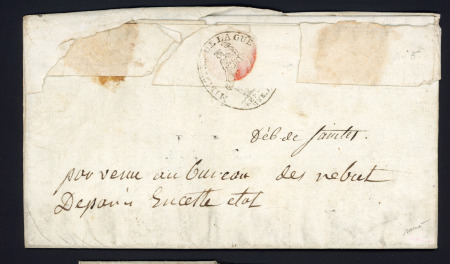 DE LA GUE
Déb de Saintes.
parvenu au bureau des rebut
De paris En cette etat